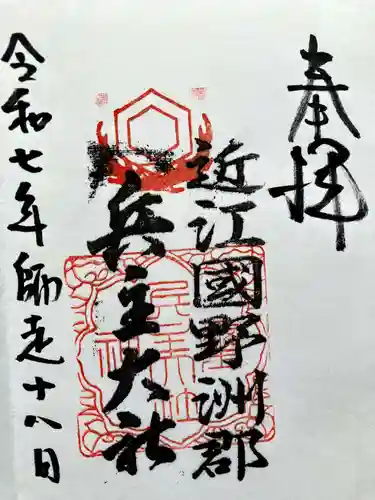 奉拝
近江國野洲郡
兵主大社
令和七年師走十八日